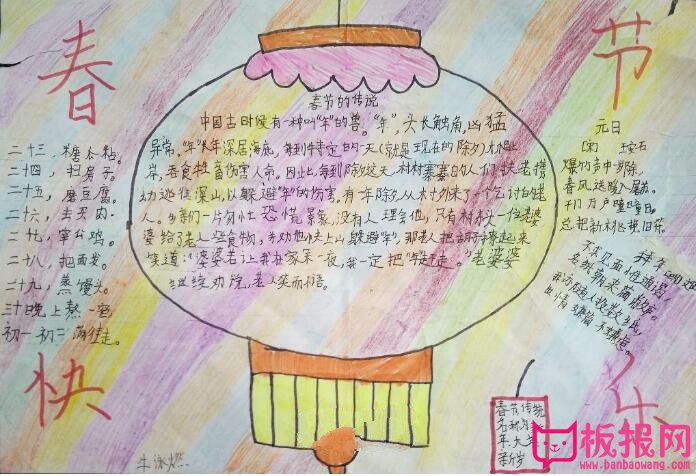 春
节
快
乐
春节的传说
中国古时候有一种叫"年"的兽。"年",头长触角,凶猛
异常。"年"长年深居海底,每到特定的一天(就是现在的除夕)才爬上
岸,吞食牲畜伤害人命。因此,每到除夕这天,村村寨寨的人们扶老携
幼逃往深山,以躲避"年"的伤害。有一年除夕,从村外来了个乞讨的老
人。乡亲们一片匆忙恐慌景象,没有人理会他,只有村东头一位老婆
婆给了老人些食物,并劝他快上山躲避"年",那老人把胡子撩起来
笑道:"婆婆若让我在家呆一夜,我一定把"年"赶走。"老婆婆
继续劝说,老人笑而不语。
二十三,糖瓜粘。
二十四,扫房子。
二十五,磨豆腐。
二十六,去买肉。
二十七,宰公鸡。
二十八,把面发。
二十九,蒸馒头。
三十晚上熬一宿,
初一初二满街走。
元日
[宋] 王安石
爆竹声中一岁除,
春风送暖入屠苏。
千门万户曈曈日,
总把新桃换旧符。
拜年
不求见面惟通谒,
名纸朝来满敝庐。
我亦随人投数纸,
世情嫌简不嫌虚。
春节传统
名称为
年大
新岁
板报网
www.banbaowang.com